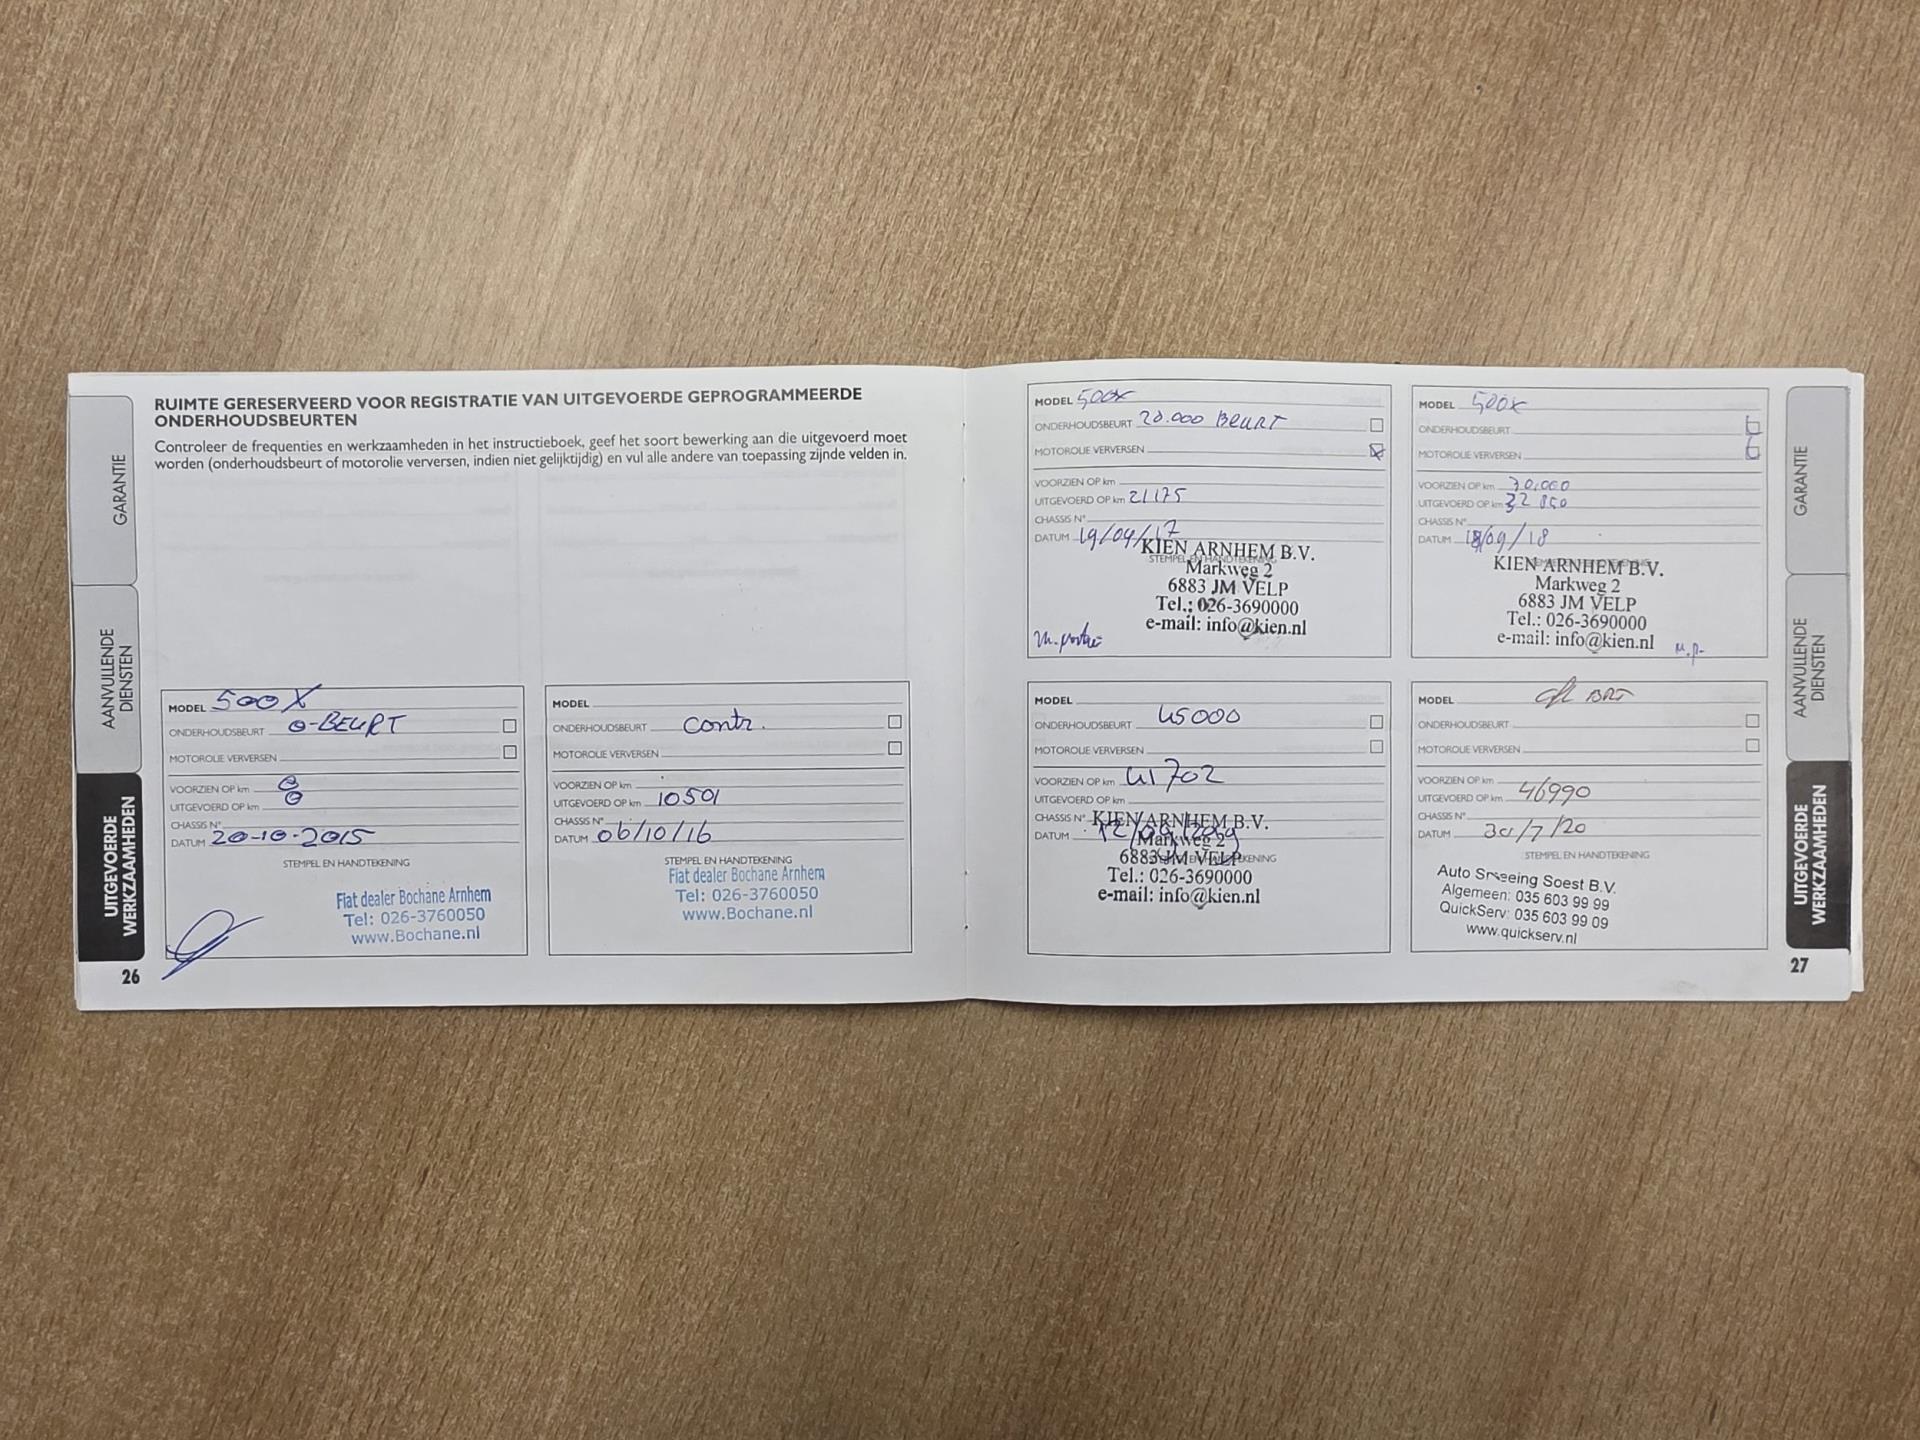 GARANTIE
AANVULLENDE
DIENSTEN
UITGEVOERDE
WERKZAAMHEDEN
RUIMTE GERESERVEERD VOOR REGISTRATIE VAN UITGEVOERDE GEPROGRAMMEERDE
ONDERHOUDSBEURTEN
Controleer de frequenties en werkzaamheden in het instructieboek, geef het soort bewerking aan die uitgevoerd moet
worden (onderhoudsbeurt of motorolie verversen, indien niet gelijktijdig) en vul alle andere van toepassing zijnde velden in.
MODEL 500X
ONDERHOUDSBEURT 0-BEURT
MOTOROLIE VERVERSEN
VOORZIEN OP km 0
UITGEVOERD OP km 0
CHASSIS N°
DATUM 20-10-2015
STEMPEL EN HANDTEKENING
Fiat dealer Bochane Arnhem
Tel: 026-3760050
www.Bochane.nl
26
MODEL
ONDERHOUDSBEURT contr.
MOTOROLIE VERVERSEN
VOORZIEN OP km
UITGEVOERD OP km 10501
CHASSIS N°
DATUM 06/10/16
STEMPEL EN HANDTEKENING
Fiat dealer Bochane Arnhem
Tel: 026-3760050
www.Bochane.nl
MODEL 500x
ONDERHOUDSBEURT 20.000 BEURT
MOTOROLIE VERVERSEN
VOORZIEN OP km
UITGEVOERD OP km 21175
CHASSIS N°
DATUM 19/04/17
STEMPEL EN HANDTEKENING
KIEN ARNHEM B.V.
Markweg 2
6883 JM VELP
Tel.: 026-3690000
e-mail: info@kien.nl
MODEL 500x
ONDERHOUDSBEURT
MOTOROLIE VERVERSEN
VOORZIEN OP km 30.000
UITGEVOERD OP km 32 850
CHASSIS N°
DATUM 18/09/18
KIEN ARNHEM B.V.
Markweg 2
6883 JM VELP
Tel.: 026-3690000
e-mail: info@kien.nl
M.P.
MODEL
ONDERHOUDSBEURT 45000
MOTOROLIE VERVERSEN
VOORZIEN OP km 41702
UITGEVOERD OP km
CHASSIS N°
DATUM 12/09/2019
KIEN ARNHEM B.V.
Markweg 2
6883 JM VELP
Tel.: 026-3690000
e-mail: info@kien.nl
MODEL
ONDERHOUDSBEURT
MOTOROLIE VERVERSEN
VOORZIEN OP km
UITGEVOERD OP km 46990
CHASSIS N°
DATUM 30/7/20
STEMPEL EN HANDTEKENING
Auto Service Soest B.V.
Algemeen: 035 603 99 99
QuickServ: 035 603 99 09
www.quickserv.nl
GARANTIE
AANVULLENDE
DIENSTEN
UITGEVOERDE
WERKZAAMHEDEN
27